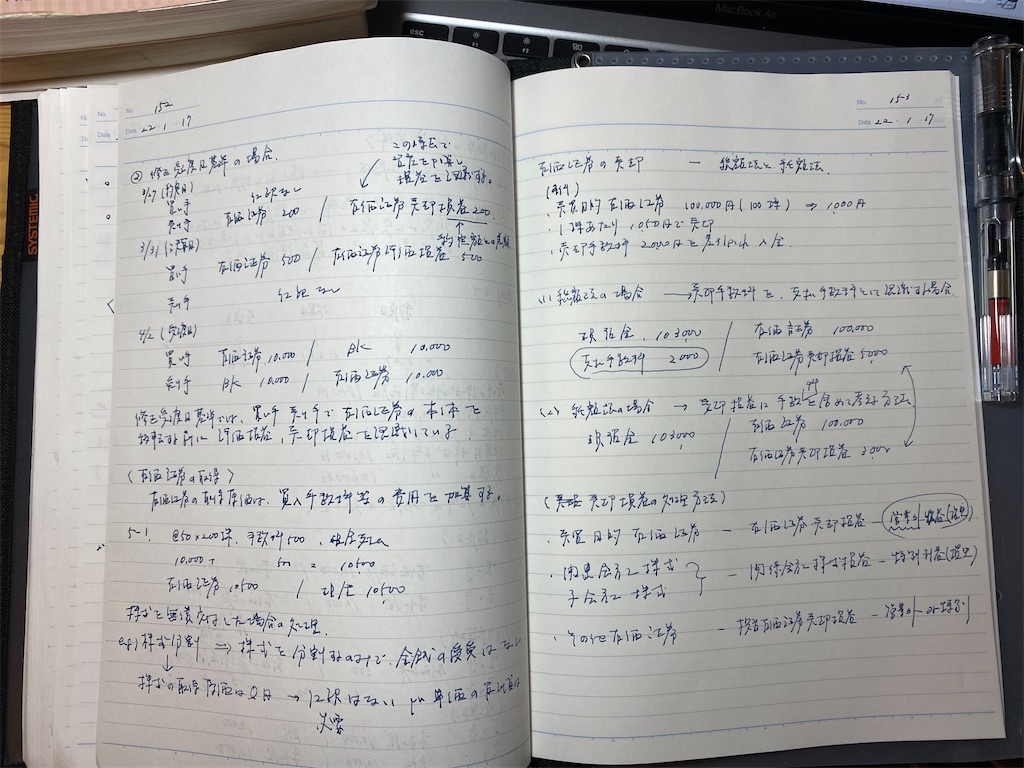 MacBook Air
esc
SYSTEMIC
No. 152
Date 22・1・17
② 修正受渡日基準の場合.
3/29(約定日)
買い手 仕訳なし
売り手 有価証券 200 / 有価証券売却損益 200
この時点で
損益を認識する。
3/31(決算日)
買い手 有価証券 500 / 有価証券評価損益 500
売り手 仕訳なし
4/2(受渡日)
買い手 有価証券 10,000 / BK 10,000
売り手 BK 10,000 / 有価証券 10,000
修正受渡日基準では、買い手 売り手で 有価証券の本体を
前に 評価損益、売却損益を認識している.
〈有価証券の取得〉
有価証券の取得原価は、買入手数料等の費用を加算する。
5-1. @50×200株. 手数料500. 現金支払
10,000 + 500 = 10500
有価証券 10500 / 現金 10500
株式を無償交付した場合の処理.
eg)株式分割 ⇒ 株式を分割するのみで、金銭の受受はなし
↓
株式の取得原価は → 仕訳はない 単価の は
必要
No. 153
Date 22・1・17
有価証券の売却 — 総額法と純額法.
(条件)
・売買目的有価証券 100,000円(100株) ⇒ 1,000円
・1株あたり 1,050円で売却
・売却手数料 2000円を差引かれ入金.
(1) 総額法の場合 → 売却手数料を、支払手数料として認識する場合.
現預金 103000 / 有価証券 100,000
支払手数料 2000 有価証券売却損益 5000
(2) 純額法の場合 → 売却損益に手数料を含めて考える方法.
現預金 103000 / 有価証券 100,000
有価証券売却損益 3,000
(売却損益の処理方法)
・売買目的有価証券 — 有価証券売却損益 — 営業外損益
・関連会社株式
子会社株式 } — 関係会社株式損益 — 特別利益(損失)
・その他有価証券 — 投資有価証券売却損益 — 営業外 or 特別